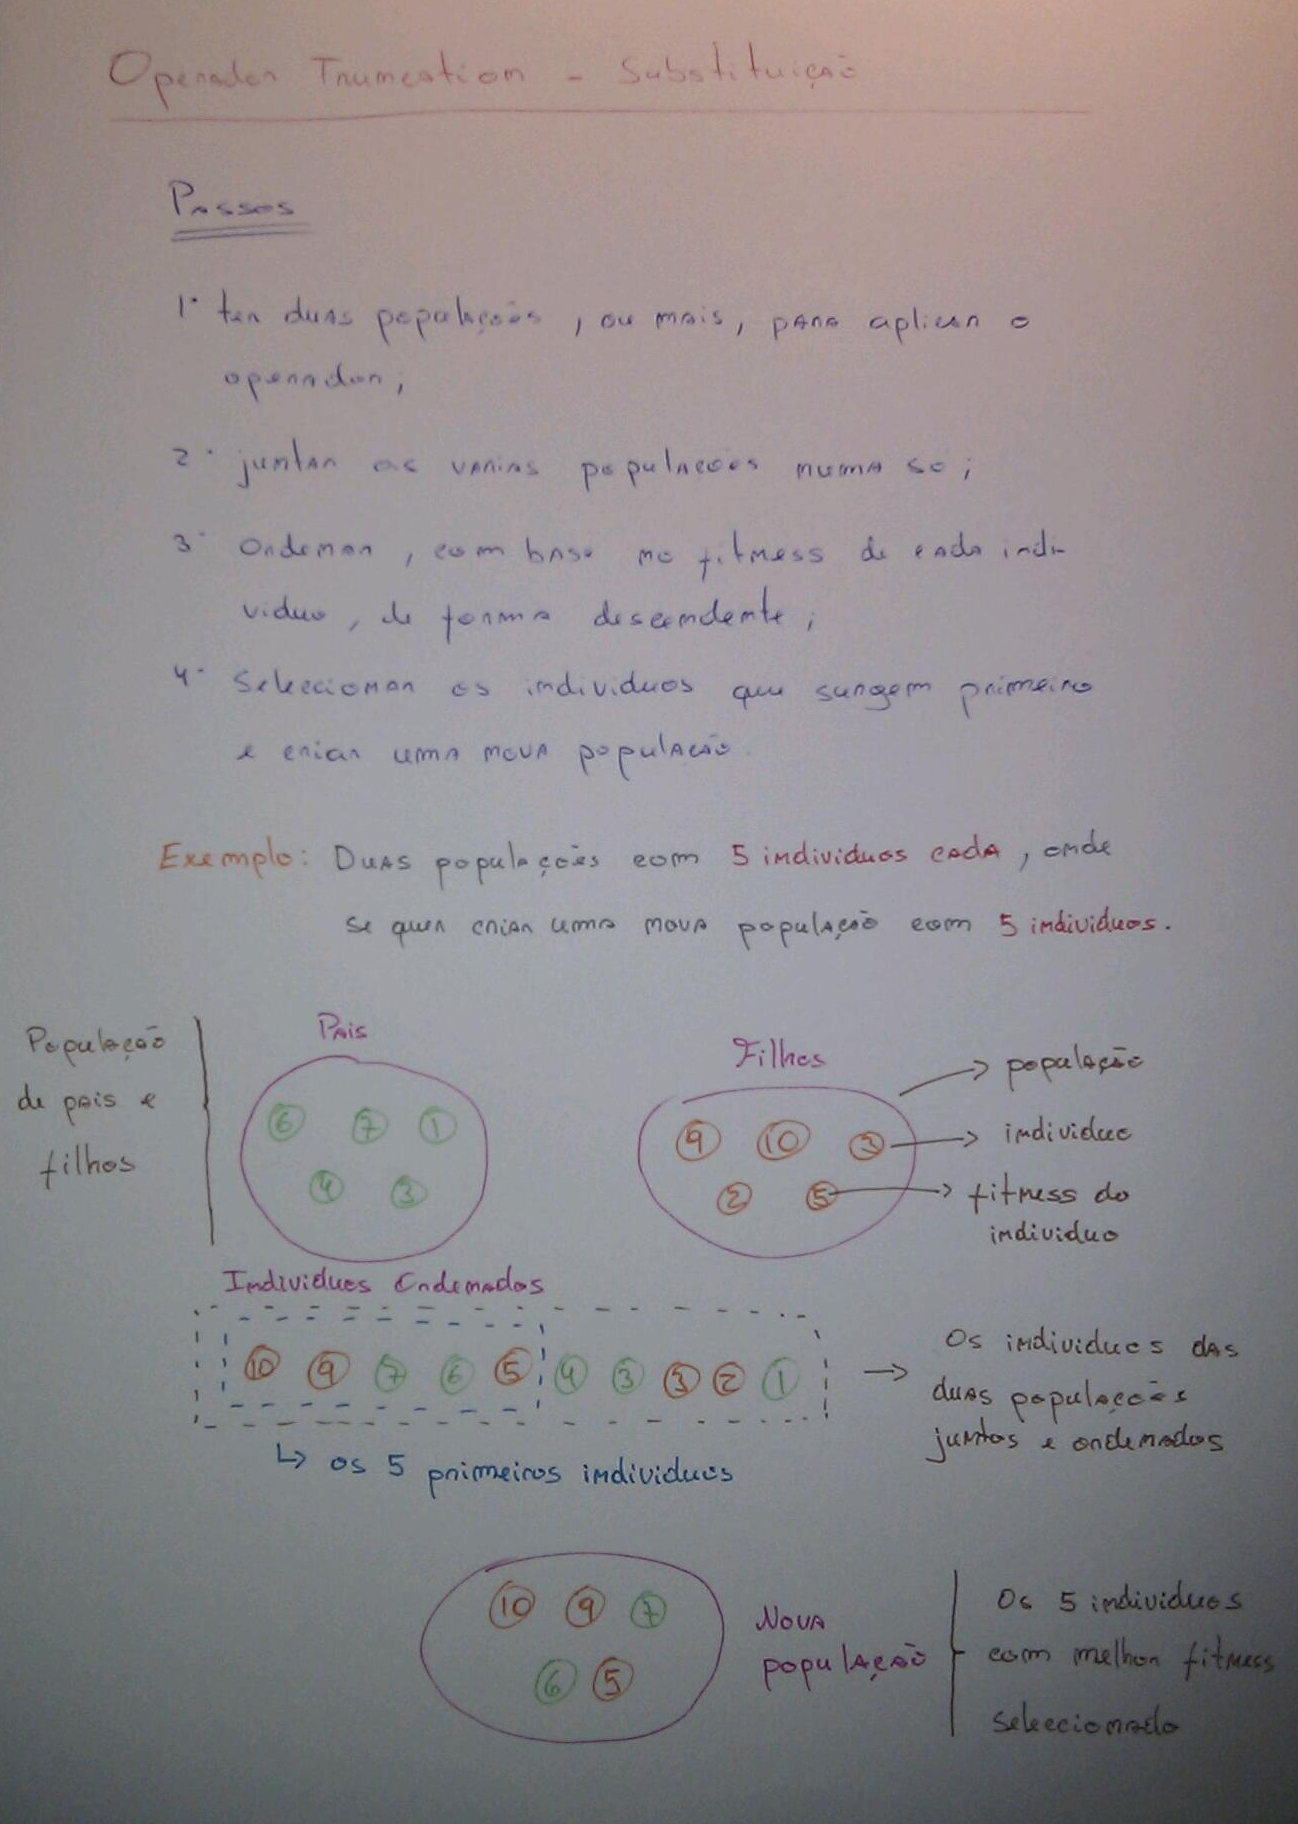 Operador Truncation - Substituição
Passos
1º ter duas populações, ou mais, para aplicar o
operador;
2º juntar as varias populações numa só;
3º Ordenar, com base no fitness de cada indi-
viduo, de forma descendente;
4º Seleccionar os individuos que surgem primeiro
e criar uma nova população.
Exemplo: Duas populações com 5 individuos cada, onde
se quer criar uma nova população com 5 individuos.
População
de pais e
filhos
Pais
6 7 1
4 3
Filhos
9 10 3
2 5
população
individuo
fitness do
individuo
Individuos Ordenados
10 9 7 6 5 4 3 3 2 1
Os individuos das
duas populações
juntos e ordenados
os 5 primeiros individuos
10 9 7
6 5
Nova
população
Os 5 individuos
com melhor fitness
seleccionado